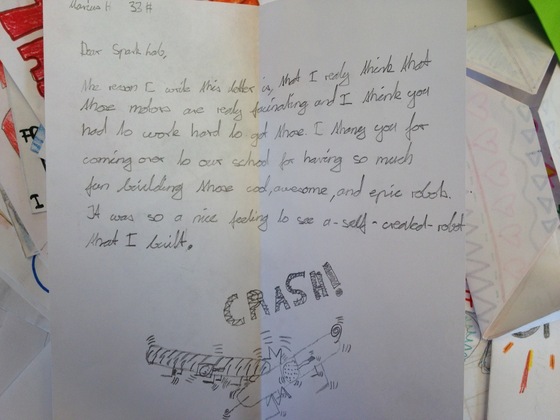 Marcus H. 33#
Dear Spark Labs,
the reason I write this letter is, that I realy think that
those motors are realy facinating and I think you
had to work hard to get those. I thang you for
coming over to our school for having so much
fun building those cool, awesome, and epic robots.
It was so a nice feeling to see a-self-created-robot
that I built.
CRASH!!